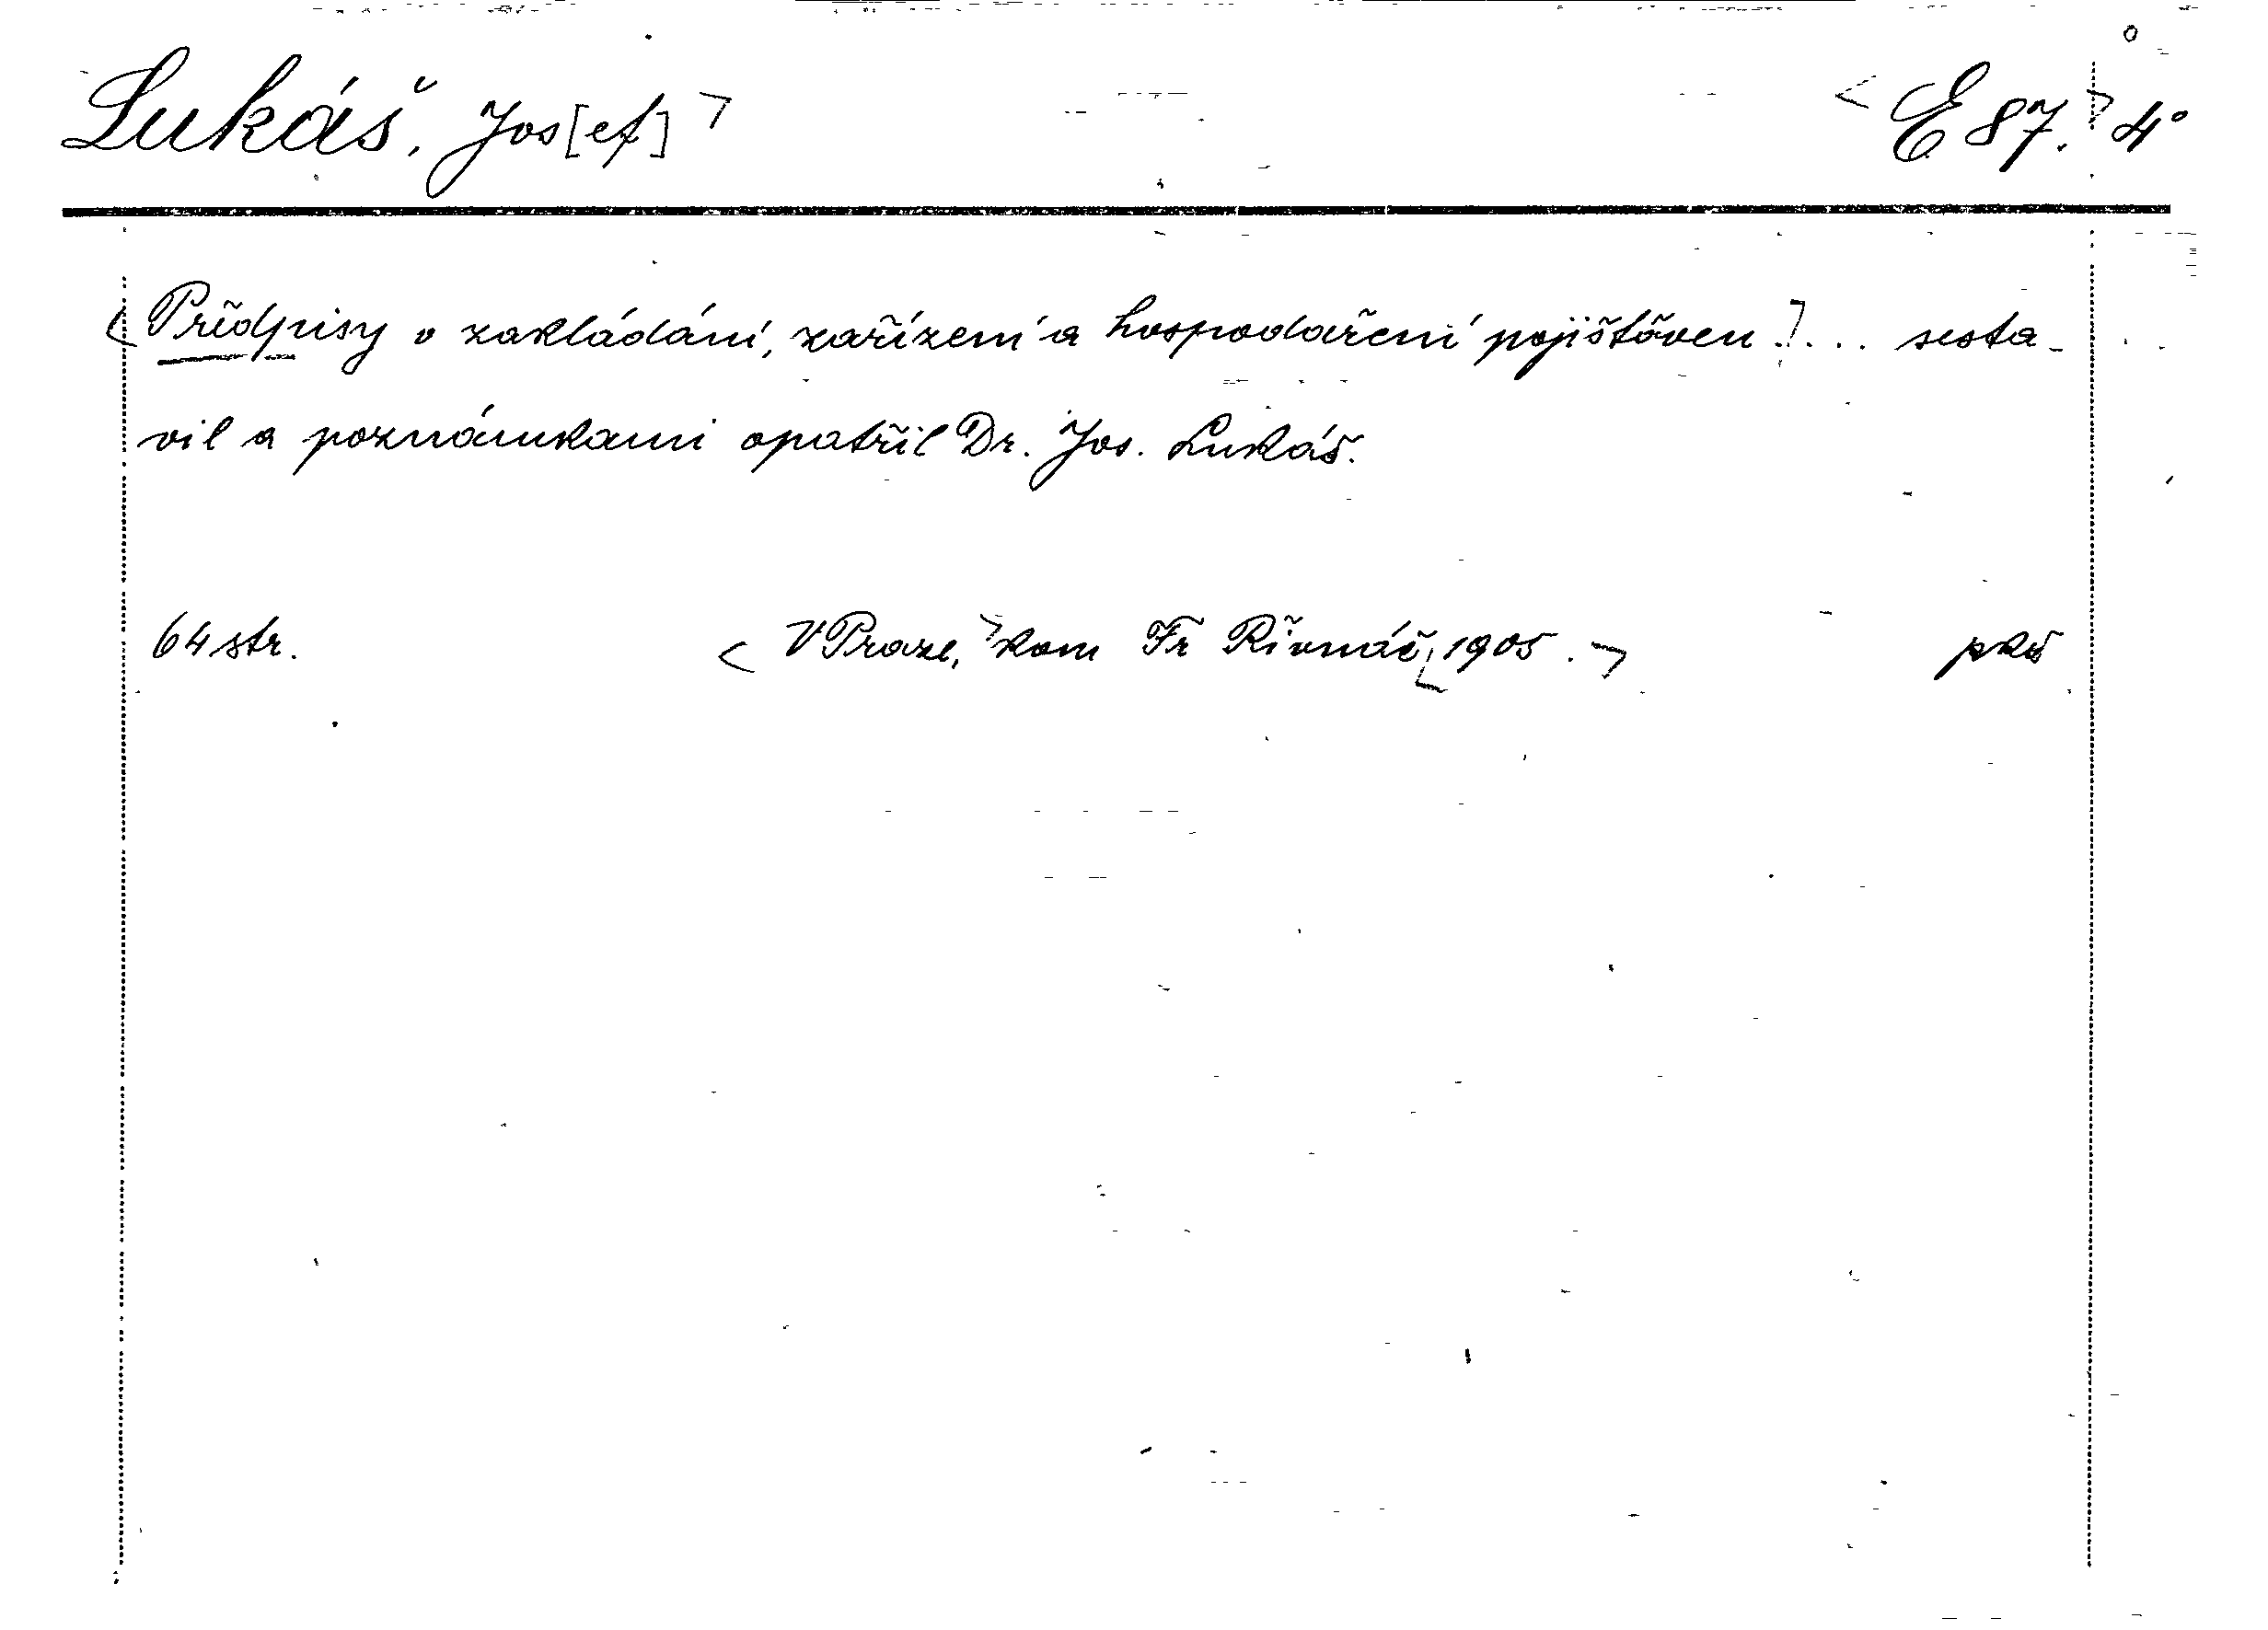 Lukáš, Jos[ef] E 87. 4°
Předpisy o zakládání, zařízení a hospodaření pojišťoven ... sesta-
vil a poznámkami opatřil Dr. Jos. Lukáš.
64 str. V Praze, kom Fr Řivnáč, 1905.